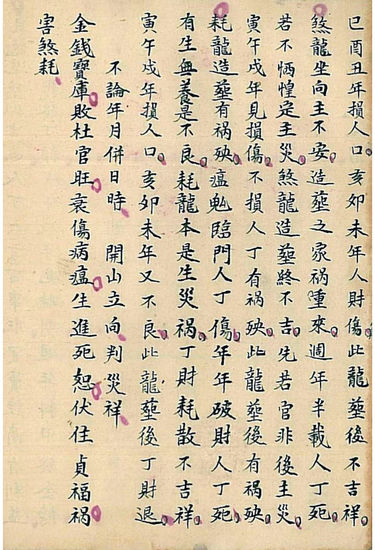 巳酉丑年損人口亥卯未年人財傷此龍葬後不吉祥
煞龍坐向主不安造葬之家祸重來週年半載人丁死
若不恓惶定主災煞龍造葬終不吉先若官非後主災
寅午戌年見損傷不損人丁有祸殃此龍葬後有祸殃
耗龍造葬有祸殃瘟鬼臨門人丁傷年年破財人丁死
有生無養是不良耗龍本是生災祸丁財耗散不吉祥
寅午戌年損人口亥卯未年又不良此龍葬後丁財退
不論年月併日時 開山立向判災祥
金錢寶庫敗杜官旺衰傷病瘟生進死恕伏住貞福祸
害煞耗